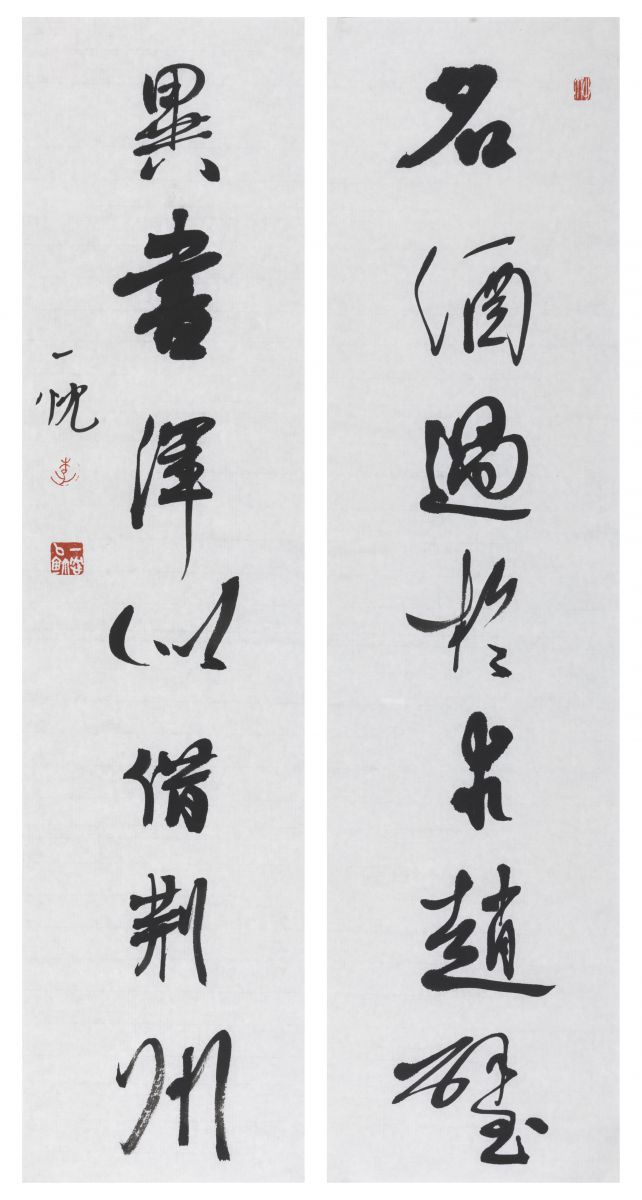 名酒過於求趙璧
異書渾似借荊州
一忱
李